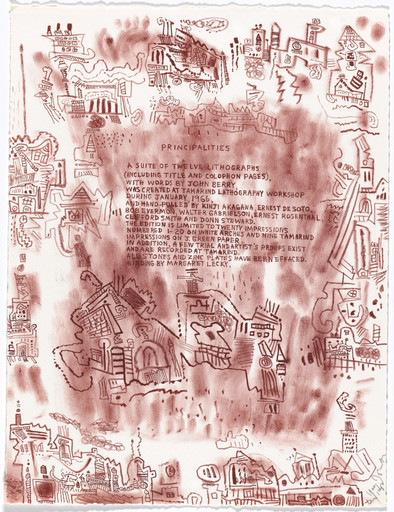 PRINCIPALITIES
A SUITE OF TWELVE LITHOGRAPHS
(INCLUDING TITLE AND COLOPHON PAGES),
WITH WORDS BY JOHN BERRY
WAS CREATED AT TAMARIND LITHOGRAPHY WORKSHOP
DURING JANUARY, 1966,
AND HAND-PULLED BY KINJI AKAGAWA, ERNEST DE SOTO,
BOB EVERMON, WALTER GABRIELSON, ERNEST ROSENTHAL,
CLIFFORD SMITH AND DONN STEWARD.
THE EDITION IS LIMITED TO TWENTY IMPRESSIONS
NUMBERED 1-20 ON WHITE ARCHES AND NINE TAMARIND
IMPRESSIONS ON J. GREEN PAPER
IN ADDITION, A FEW TRIAL AND ARTIST'S PROOFS EXIST
AND ARE RECORDED AT TAMARIND.
ALL STONES AND ZINC PLATES HAVE BEEN EFFACED.
BINDING BY MARGARET LECKY.